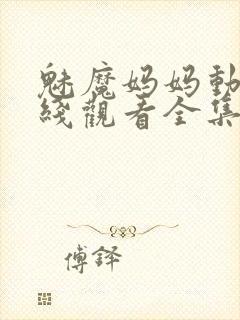 魅魔妈妈動
綫觀看全集
傅鐸